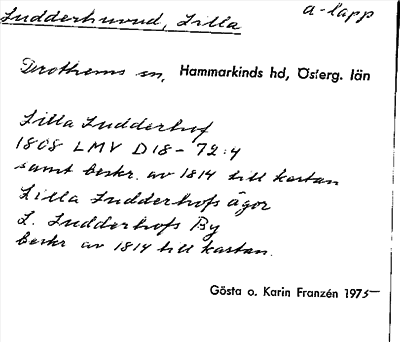 Ludderhuvud, Lilla
a-lapp
Drothems sn, Hammarkinds hd, Österg. län
Lilla Ludderhof
1808 LMV D18-72:4
samt beskr. av 1814 till kartan
Lilla Ludderhofs ägor
L. Ludderhofs By
beskr av 1814 till kartan.
Gösta o. Karin Franzén 1975